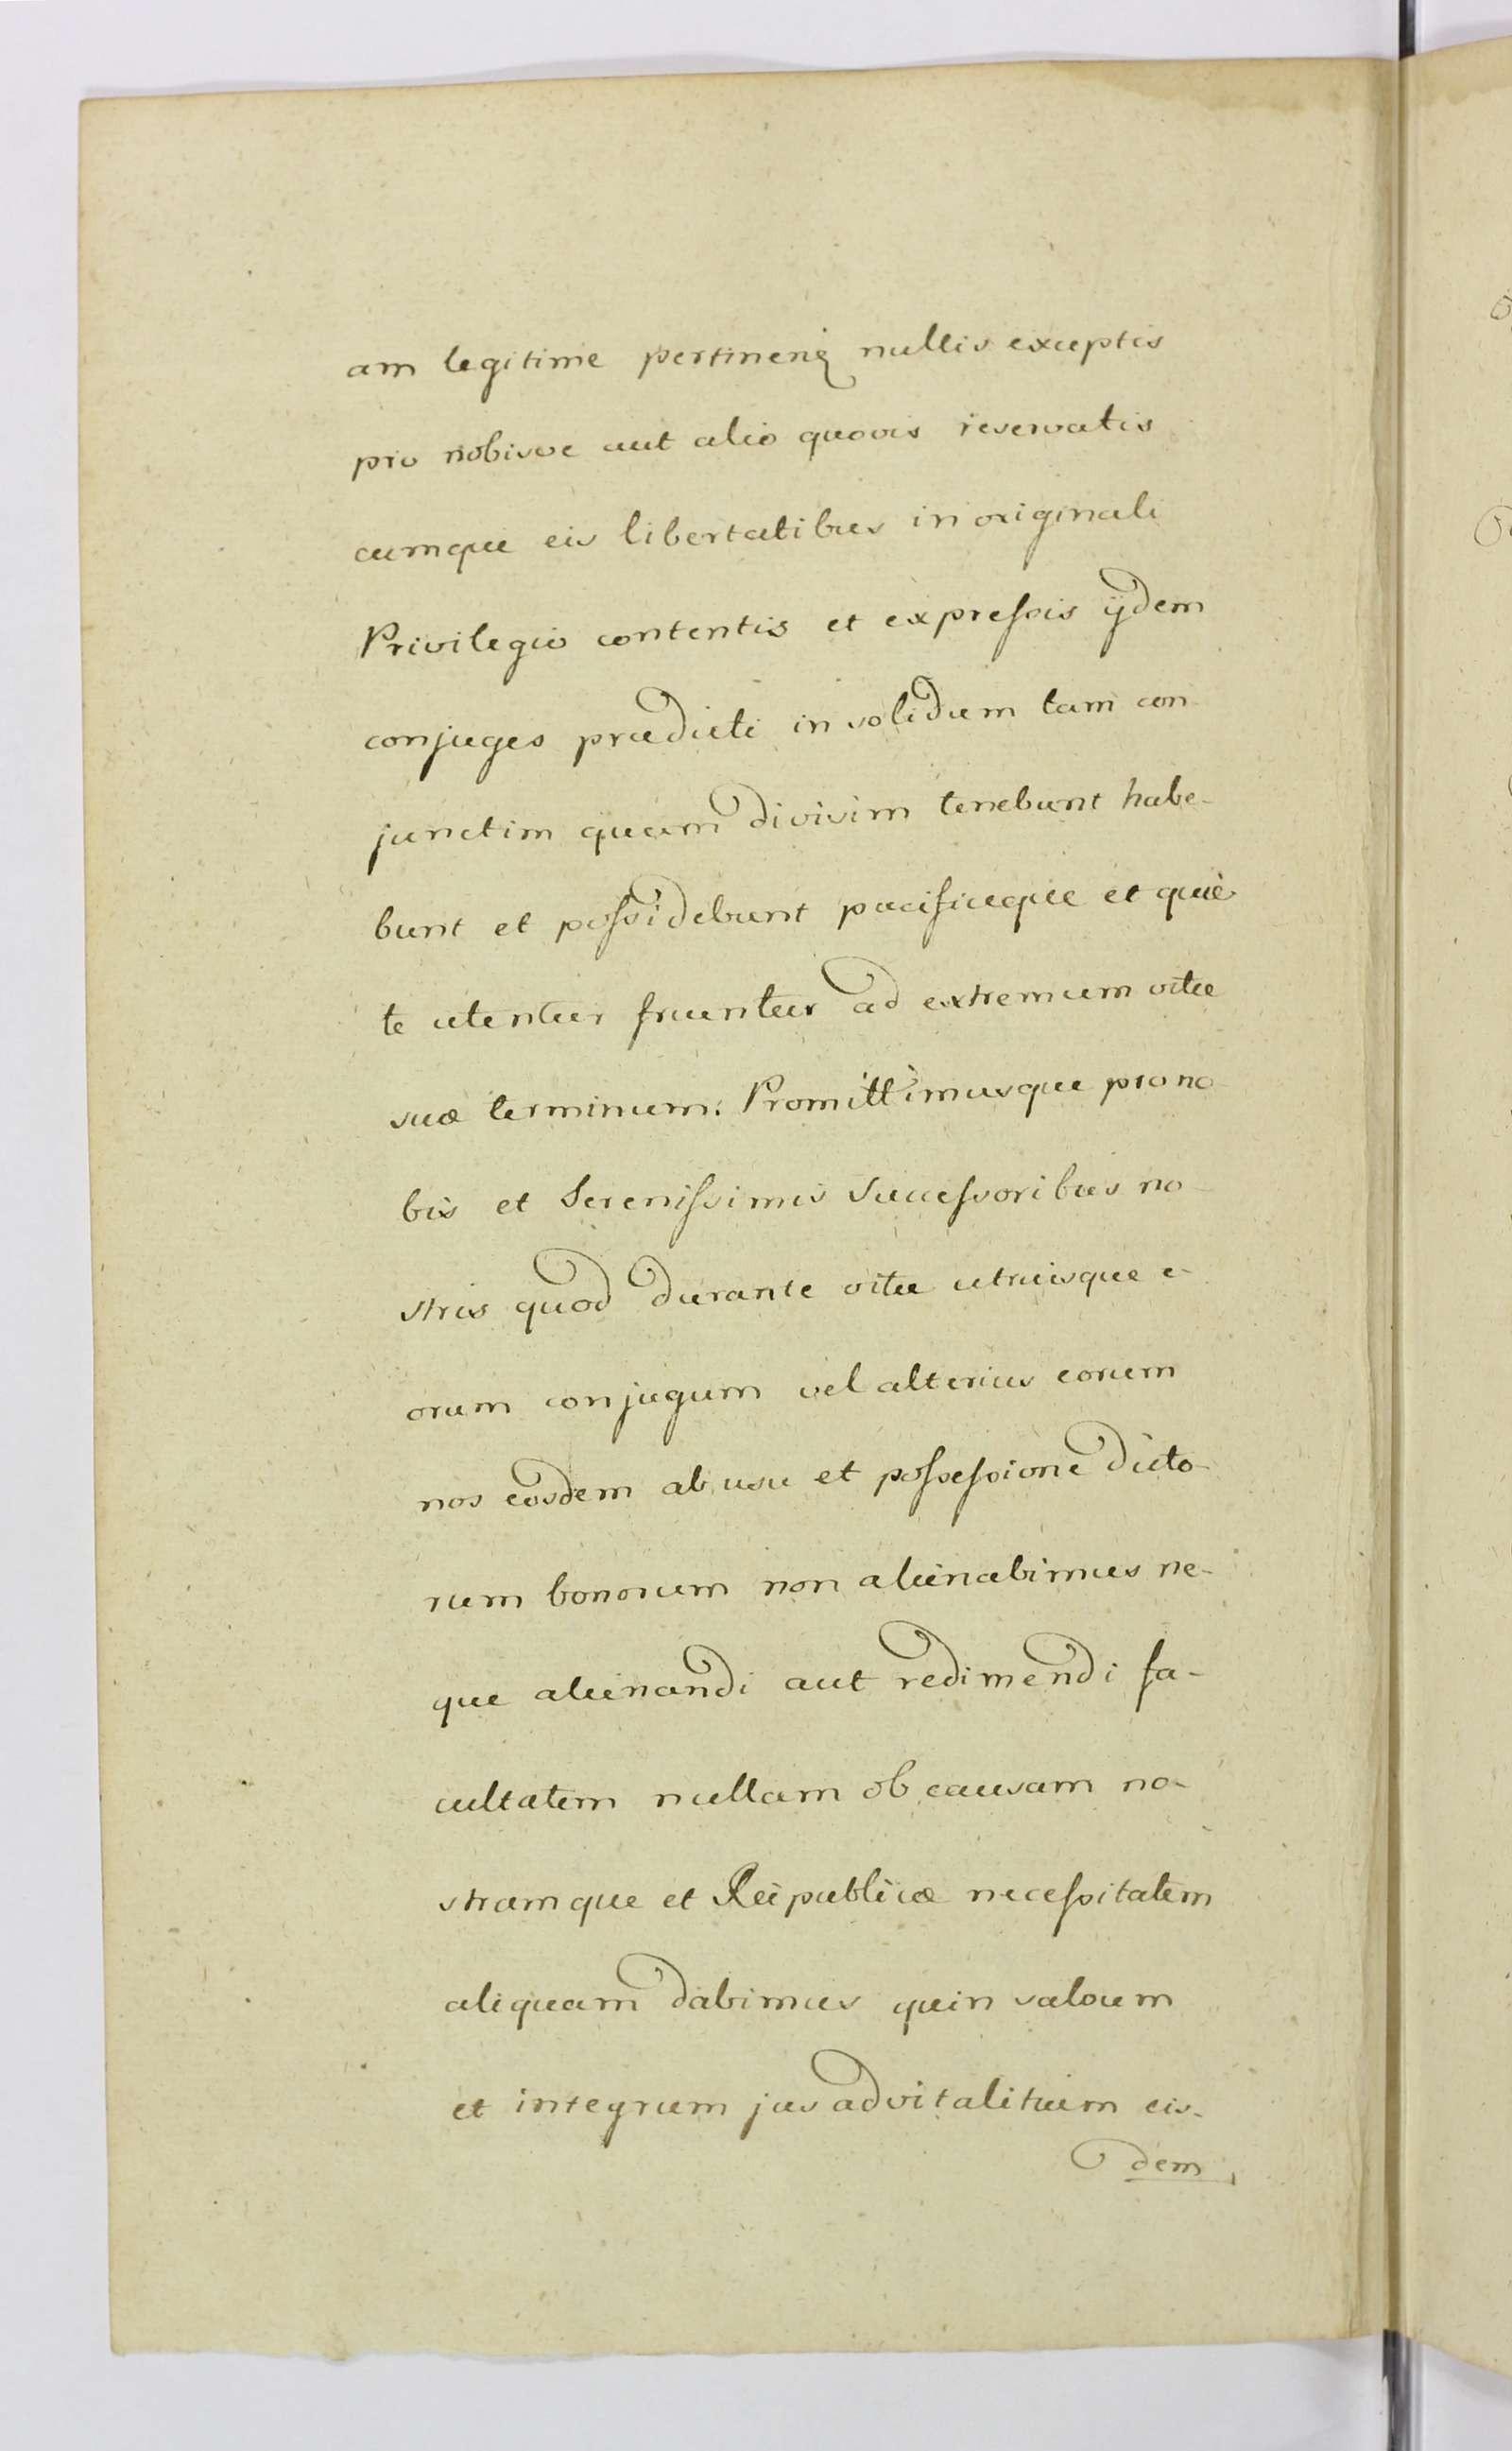 am legitime pertinen[ꝫ] nullis exceptis
pro nobisve aut alio quovis reservatis
cumque eis libertatibus in originali
Privilegio contentis et expreſsis ijdem
conjuges prædicti in solidum tam con
junctim quam divisim tenebunt habe-
bunt et poſsidebunt pacificeque et quiè
te utentur fruentur ad extremum vitæ
suæ terminum. Promittimusque pro no
bis et Sereniſsimis Succeſsoribus no-
stris quod durante vitæ utriusque e-
orum conjugum vel alterius eorum
nos eosdem ab usu et poſseſsione dicto-
rum bonorum non alienabimus ne-
que alienandi aut redimendi fa-
cultatem nullam ob causam no-
stramque et Reipublicæ neceſsitatem
aliquam dabimus quin salvum
et integrum jus advitalitium eis-
dem